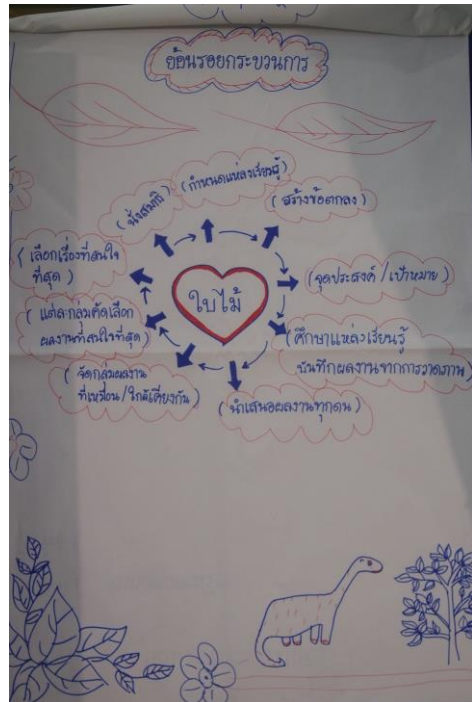 ย้อนรอยกระบวนการ
(นั่งสมาธิ)
(กำหนดแหล่งเรียนรู้)
(สร้างข้อตกลง)
(จุดประสงค์ /เป้าหมาย)
(ศึกษาแหล่งเรียนรู้
บันทึกผลงานจากการวาดภาพ)
(นำเสนอผลงานทุกคน)
(จัดกลุ่มผลงาน
ที่เหมือน/ใกล้เคียงกัน)
(แต่ละกลุ่มคัดเลือก
ผลงานที่สนใจที่สุด)
(เลือกเรื่องที่สนใจ
ที่สุด)
ใบไม้